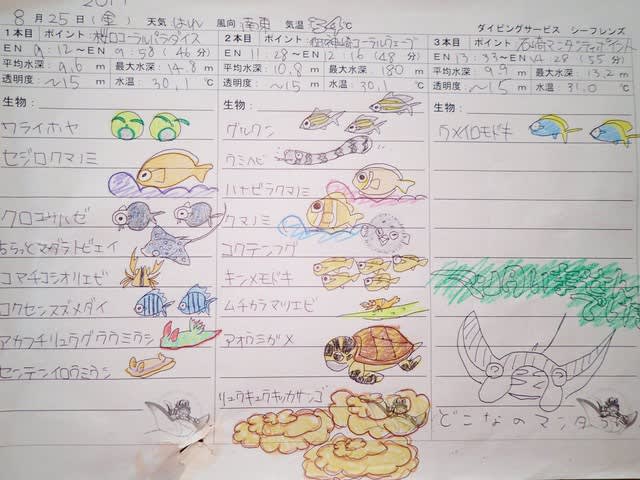 2017
8月25日(金) 天気 はれ 風向 南東 気温 34℃
ダイビングサービス シーフレンズ
1本目 ポイント 桜口コーラルパラダイス
EN 9:12～EN 9:58 (46分)
平均水深: 9.6 m 最大水深: 14.8 m
透明度: ～15 m 水温: 30.1 ℃
生物:
ワライボヤ
セジロクマノミ
クロユサルゼ
ちらっとマダラトビエイ
コマチコシオリエビ
ロクセンスズメダイ
アカフチリュウグウウミウシ
センテンイロウミウシ
2本目 ポイント
EN 11:28～EN 12:16 (48分)
平均水深: 10.8 m 最大水深: 180 m
透明度: ～15 m 水温: 30.1 ℃
生物:
グルクン
ウミヘビ
ハナビラクマノミ
クマノミ
コクテンフグ
キンメモドキ
ムチカラマツエビ
アオウミガメ
リュウキュウキッカサンゴ
3本目 ポイント 石崎マンタシティポイント
EN 13:33～EN 14:28 (55分)
平均水深: 9.9 m 最大水深: 13.2 m
透明度: ～15 m 水温: 31.0 ℃
生物:
ウメイロモドキ
どこなのマンタ